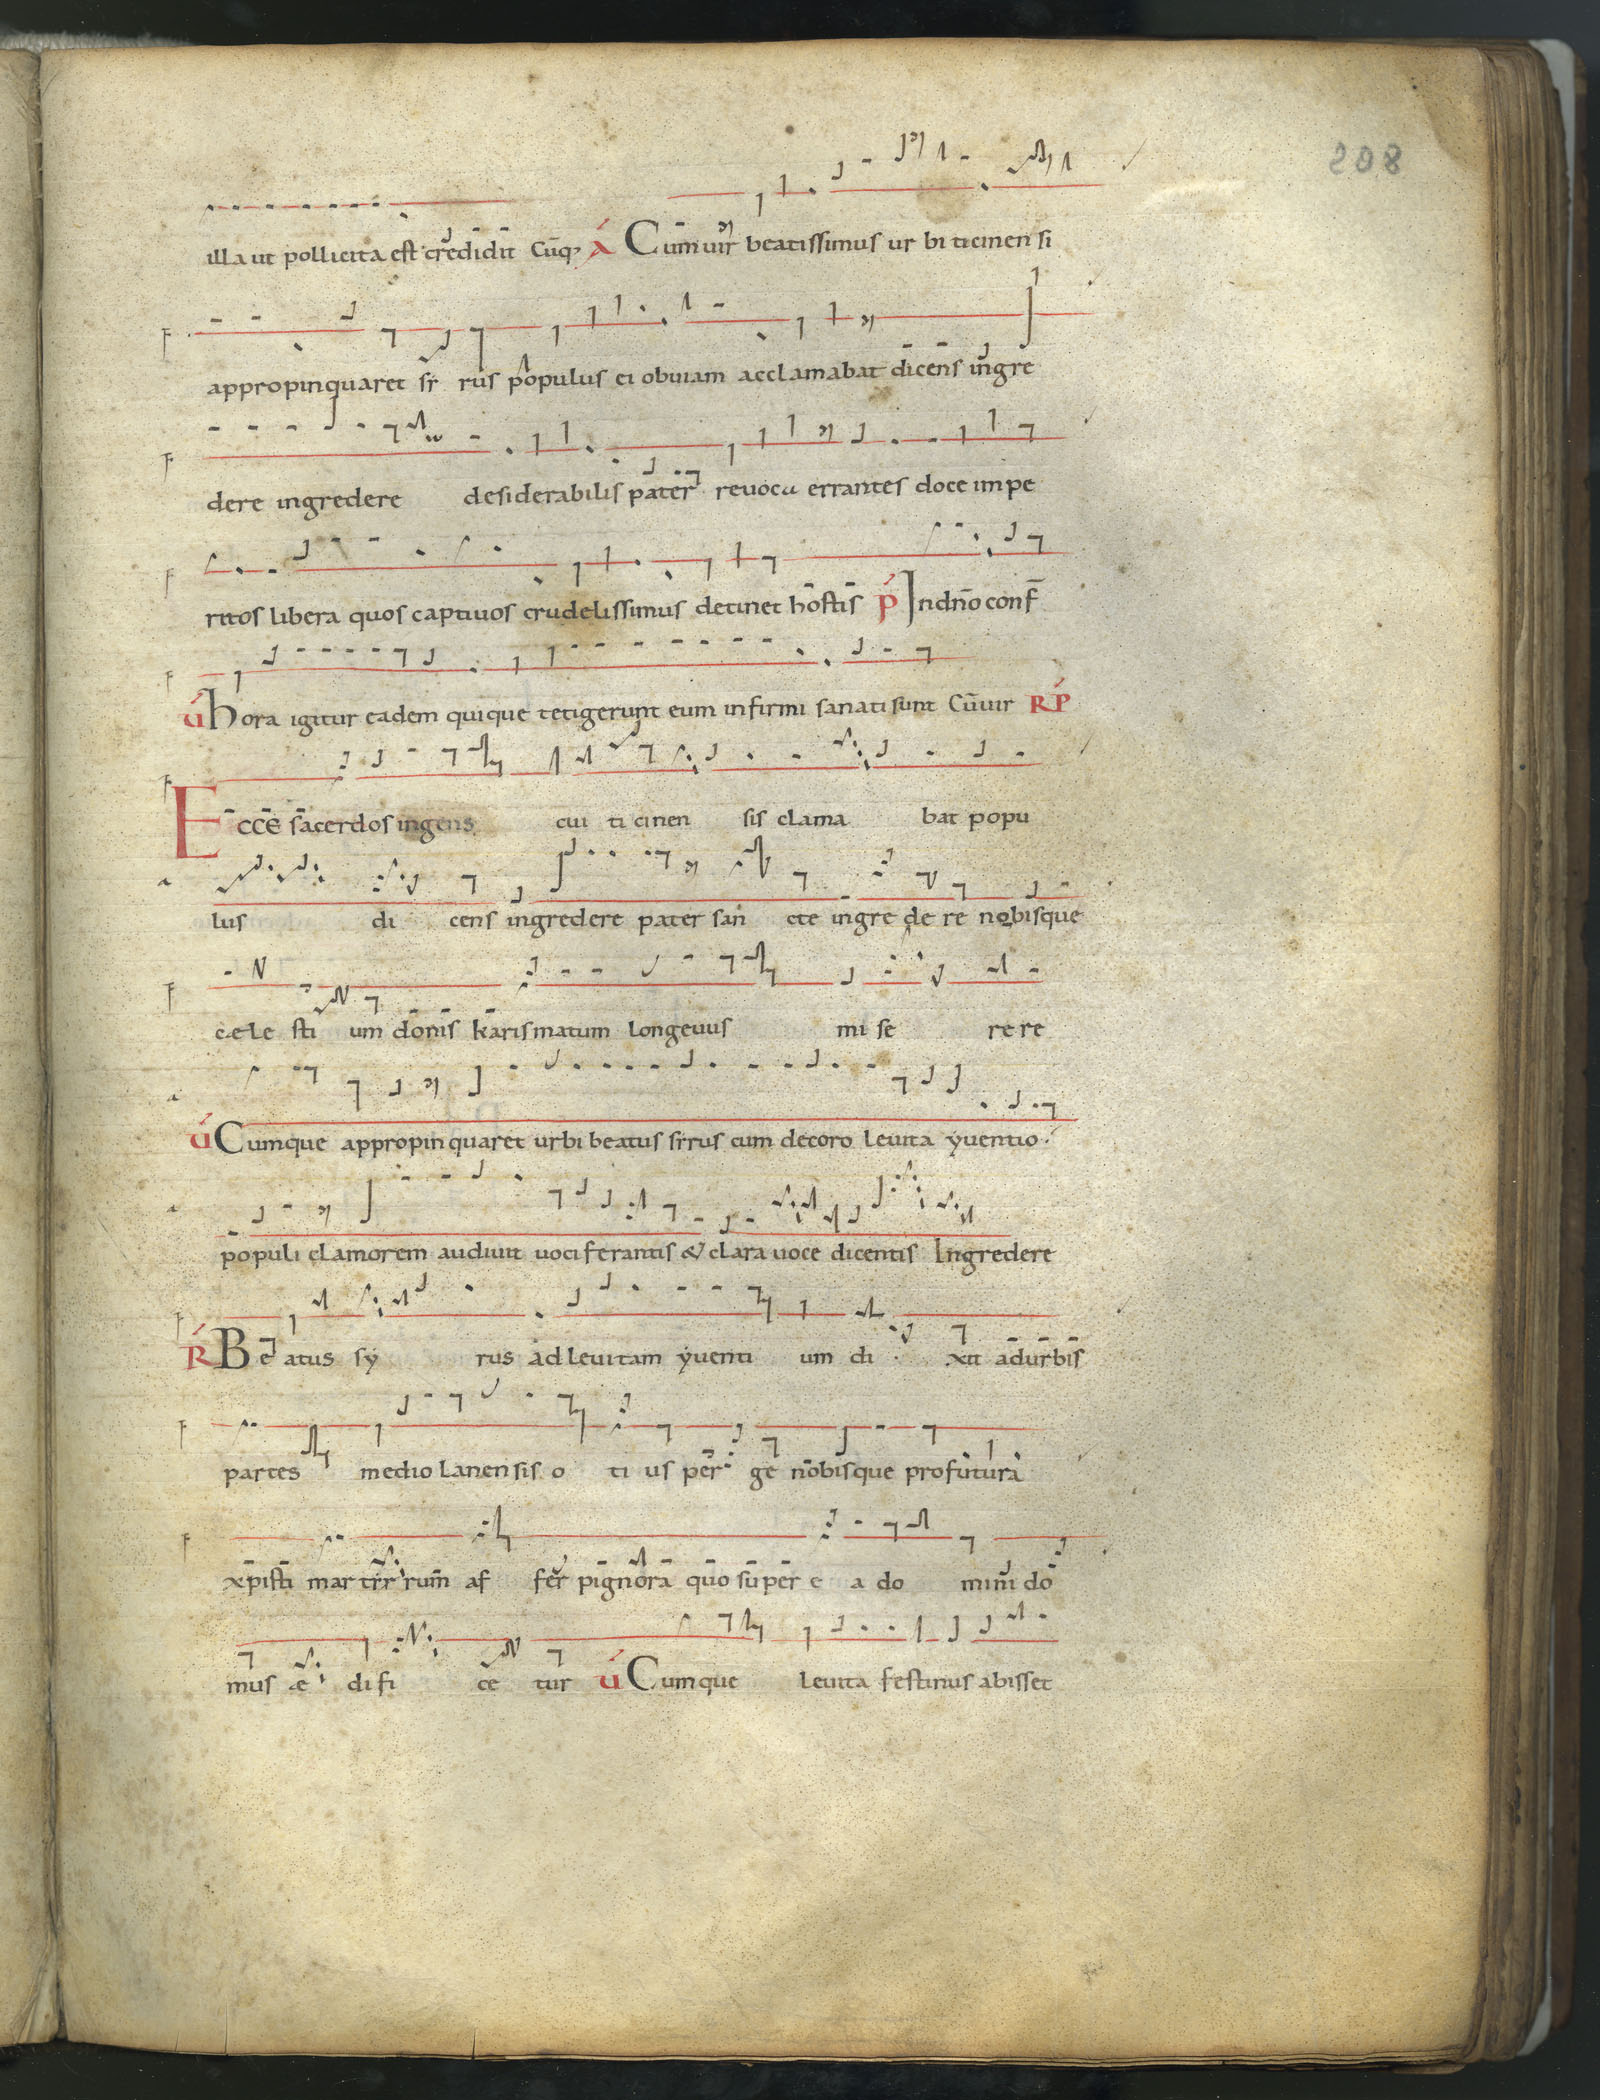 208
illa ut pollicita est credidit Cūq; A Cum uir beatissimus urbi ticinensi
appropinquaret sy rus populus ei obuiam acclamabat dicens ingre
dere ingredere desiderabilis pater reuoca errantes doce impe
ritos libera quos captiuos crudelissimus detinet hostis P Indn̄o conf̄
V hora igitur eadem quique tetigerunt eum infirmi sanati sunt Cū uir RP
Ecce sacerdos ingens cui ticinen sis clama bat popu
lus di cens ingredere pater san cte ingre de re nobisque
cæle sti um donis karismatum longeuus mi se re re
V Cumque appropinquaret urbi beatus syrus cum decoro leuita yuentio
populi clamorem audiuit uociferantis & clara uoce dicentis Ingredere
R Be atus sy rus ad leuitam yuenti um di xit ad urbis
partes mediolanensis o ti us per ge nobisque profutura
xp̄isti martyrum af fer pignora quo super e a do mini do
mus æ difi ce tur V Cumque leuita festinus abisset